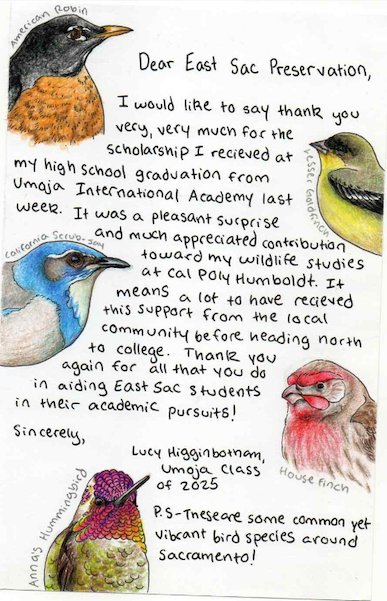 American Robin
Dear East Sac Preservation,
I would like to say thank you
very, very much for the
scholarship I recieved at
my high school graduation from
Umoja International Academy last
week. It was a pleasant surprise
and much appreciated contribution
toward my wildlife studies
at Cal Poly Humboldt. It
means a lot to have recieved
this support from the local
community before heading north
to college. Thank you
again for all that you do
in aiding East Sac students
in their academic pursuits!
Sincerely,
Lucy Higginbotham,
Umoja Class
of 2025
P.S-These are some common yet
vibrant bird species around
Sacramento!
Lesser Goldfinch
California Scrub-Jay
House Finch
Anna's Hummingbird